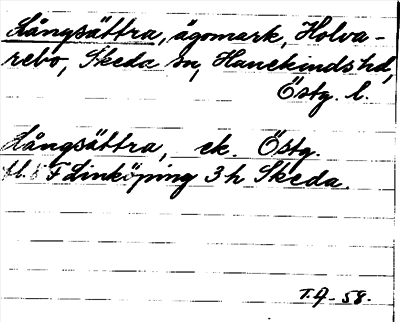 Långsättra, ägomark, Holva-
rebo, Skeda sn, Hanekinds hd,
Östg. l.
Långsättra, ek. Östg.
bl. 8 F Linköping 3 h Skeda.
T.A-58.